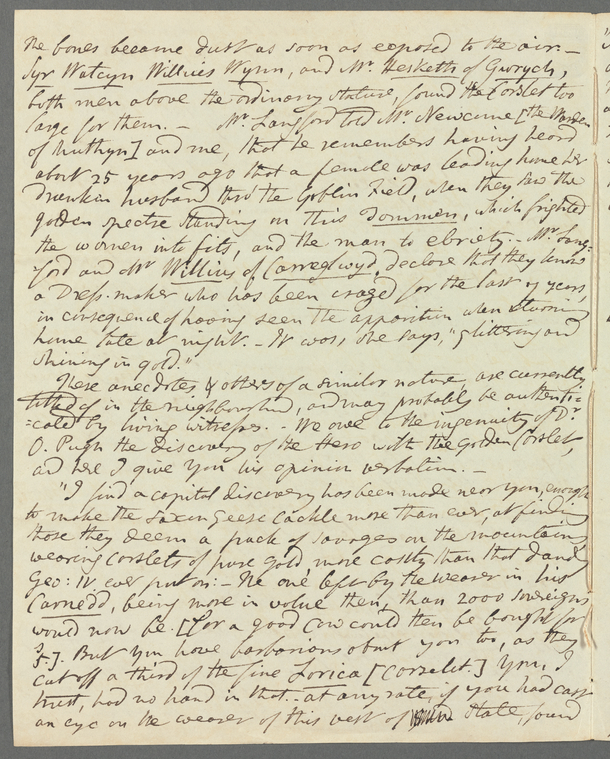 The bones became dust as soon as exposed to the air. –
Syr Watcyn Williues Wynn, and Mr Hesketh of Gwrych,
both men above the ordinary stature, found the Corslet too
large for them. – Mr. Langford told Mr. Newcome [the Warden
of Ruthyn] and me, that he remembers having heard
about 25 years ago that a female was leading home her
drunken husband thro' the Goblin Field, when they saw the
golden spectre standing on this Dommen, which frighted
the women into fits, and the man to ebriety. – Mr. Lang=
ford and Mr Willius of Carreglwyd, declare that they know
a Dress-maker who has been crazed for the last 17 years,
in consequence of having seen the apparition when returning
home late at night. – It was, she says, "glittering and
shining in gold."
These anecdotes, & others of a similar nature, are currently
talked of in the neighbourhood, and may probably be authenti=
=cated by living witnesses. – We owe to the ingenuity of Dr
O. Pugh the discovery of the Hero with the Golden Corslet,
and here I give you his opinion verbatim. –
"I find a capital discovery has been made near you, enough
to make the Saxon Geese cackle more than ever, at finding
those they deem a pack of savages on the mountains
wearing corslets of pure gold more costly than that dandy
Geo: IV ever put on: – The one left by the wearer in his
Carnedd, being more in value then, than 2000 sovereigns
would now be. [For a good cow could then be bought for
5/.]. But you have barbarians about you too, as they
cut off a third of the fine Lorica [Corselet.] You, I
trust, had no hand in that.. at any rate, if you had cast
an eye on the wearer of this vest of State, found